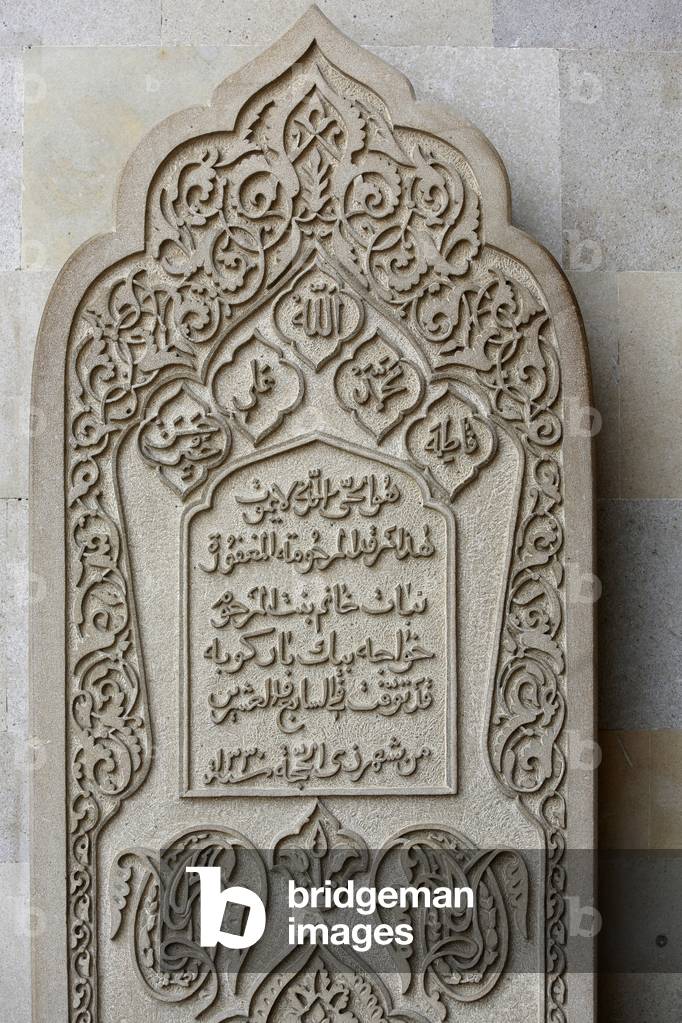 الله
محمد
علی
فاطمه
حسن حسین
هو الحی الذی لا یموت
هذا مرقد المرحومة المغفورة
نبات خانم بنت المرحوم
خواجه بیک بارکویه
قد توفت فی السابع و العشرین
من شهر ذی الحجة سنه ١٣٣٠
bridgeman
images